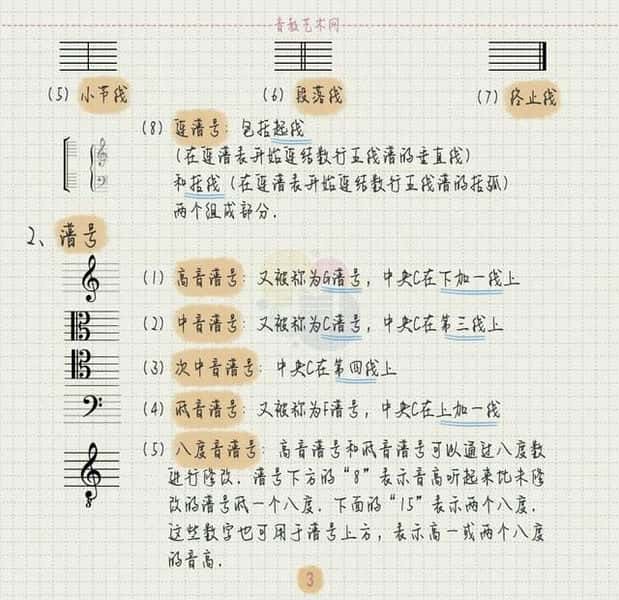 音教艺术网
(5) 小节线 (6) 段落线 (7) 终止线
(8) 连谱号: 包括起线
(在连谱表开始连结数行五线谱的垂直线)
和括线 (在连谱表开始连结数行五线谱的括弧)
两个组成部分.
2、谱号
(1) 高音谱号: 又被称为G谱号, 中央C在下加一线上
(2) 中音谱号: 又被称为C谱号, 中央C在第三线上
(3) 次中音谱号: 中央C在第四线上
(4) 低音谱号: 又被称为F谱号, 中央C在上加一线
(5) 八度音谱号: 高音谱号和低音谱号可以通过八度数
进行修改. 谱号下方的“8”表示音高听起来比未修
改的谱号低一个八度. 下面的“15”表示两个八度.
这些数字也可用于谱号上方, 表示高一或两个八度
的音高.
8
3